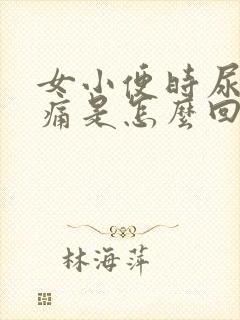 女小便时尿
痛是怎麼回
林海萍